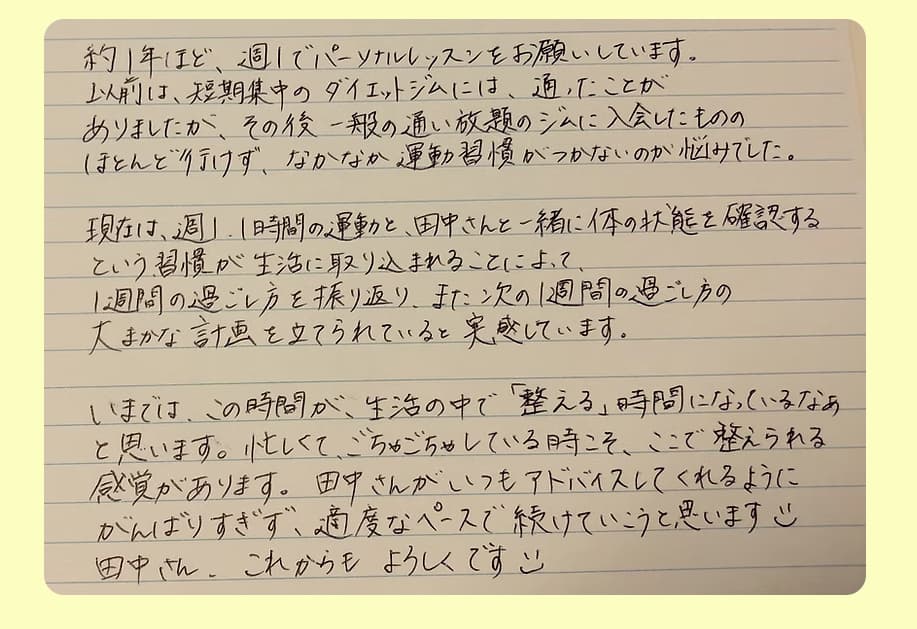 約1年ほど、週1でパーソナルレッスンをお願いしています。
以前は、短期集中のダイエットジムには、通ったことが
ありましたが、その後一般の通い放題のジムに入会したものの
ほとんど行けず、なかなか運動習慣がつかないのが悩みでした。
現在は、週1、1時間の運動と、田中さんと一緒に体の状態を確認する
という習慣が生活に取り込まれることによって、
1週間の過ごし方を振り返り、また次の1週間の過ごし方の
大まかな計画を立てられていると実感しています。
いまでは、この時間が、生活の中で「整える」時間になっているなぁ
と思います。忙しくて、ごちゃごちゃしている時こそ、ここで整えられる
感覚があります。田中さんがいつもアドバイスしてくれるように
がんばりすぎず、適度なペースで続けていこうと思います
田中さん、これからもよろしくです